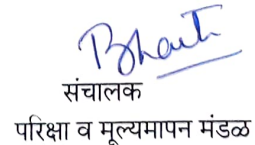 Bharti
संचालक
परिक्षा व मूल्यमापन मंडळ